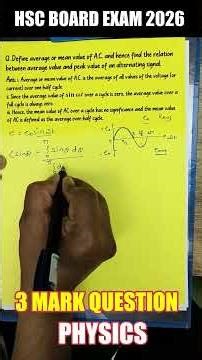 HSC BOARD EXAM 2026
Q. Define average or mean value of A.C. and hence find the relation
between average value and peak value of an alternating signal.
Ans.: Average or mean value of A.C. is the average of all values of the voltage (or
current) over one half cycle.
Since the average value of sin ωt over a cycle is zero, the average value over a
full cycle is always zero.
Hence, the mean value of AC over a cycle has no significance and the mean value
of AC is defined as the average over half cycle.
e = e₀ sin ωt
3 MARK QUESTION
PHYSICS